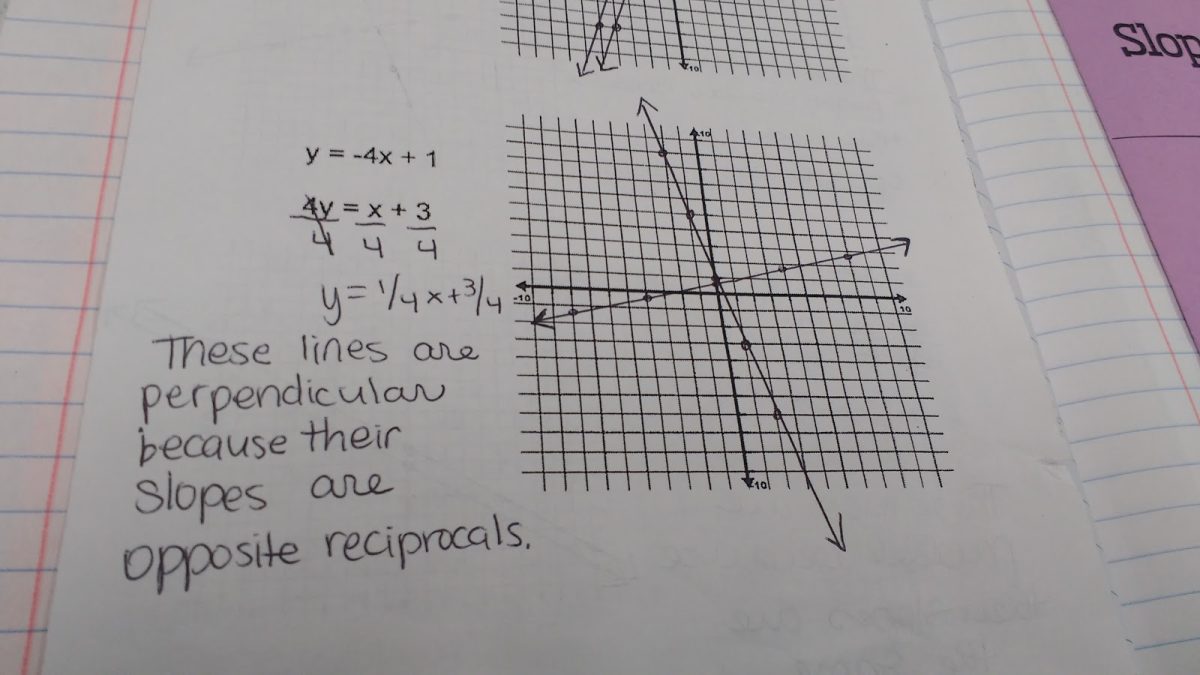 10
y = -4x + 1
4y = x + 3
4 4 4
y = 1/4 x + 3/4
These lines are
perpendicular
because their
slopes are
opposite reciprocals.
10
-10
10
-10